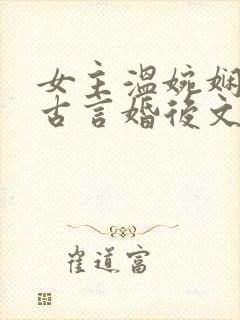 女主温婉娴
古言婚後文
崔道富